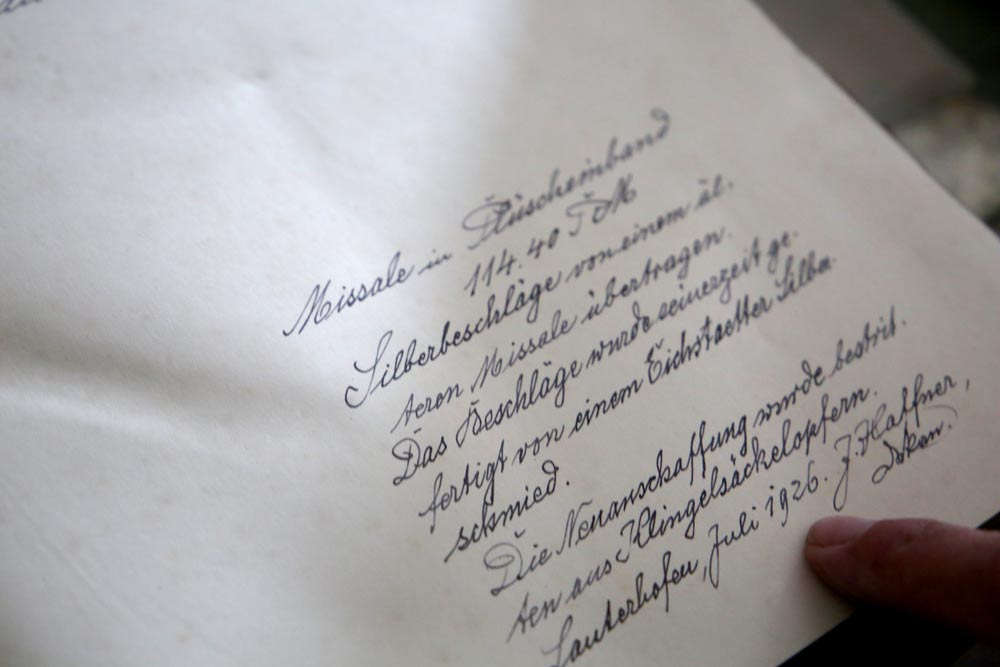 Missale in Plüscheinband
114.40 RM
Silberbeschläge von einem äl-
teren Missale übertragen.
Das Beschläge wurde seinerzeit ge-
fertigt von einem Eichstaetter Silber-
schmied.
Die Neuanschaffung wurde bestrit-
ten aus Klingelsäckelopfern.
Lauterhofen, Juli 1926. J. Haffner,
Dekan.